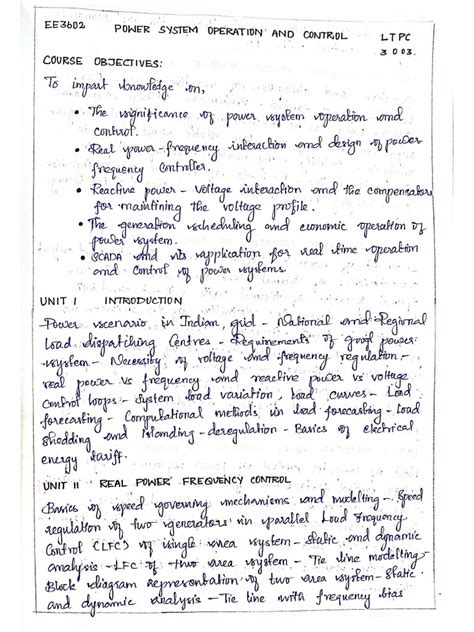 EE3602 POWER SYSTEM OPERATION AND CONTROL L T P C
3 0 0 3.
COURSE OBJECTIVES:
To impart knowledge on,
• The significance of power system operation and
control.
• Real power-frequency interaction and design of power
frequency Controller.
• Reactive power - Voltage interaction and the compensators
for maintining the voltage profile.
• The generation scheduling and economic operation of
power system.
• SCADA and its application for real time operation
and control of power systems.
UNIT I INTRODUCTION
Power scenario in Indian grid - National and Regional
Load dispatching Centres - Requirements of good power
system - Necessity of voltage and frequency regulation -
real power vs frequency and reactive power vs voltage
Control loops - System load variation, load curves - Load
forecasting - Computational methods in load forecasting - Load
Shedding and Islanding - deregulation - Basics of electrical
energy tariff.
UNIT II REAL POWER FREQUENCY CONTROL
Basics of speed governing mechanisms and modelling - Speed
regulation of two generators in parallel Load Frequency
Control (LFC) of single area system - Static and dynamic
analysis - LFC of two area system - Tie line modelling -
Block diagram representation of two area system - Static
and dynamic analysis - Tie line with frequency bias